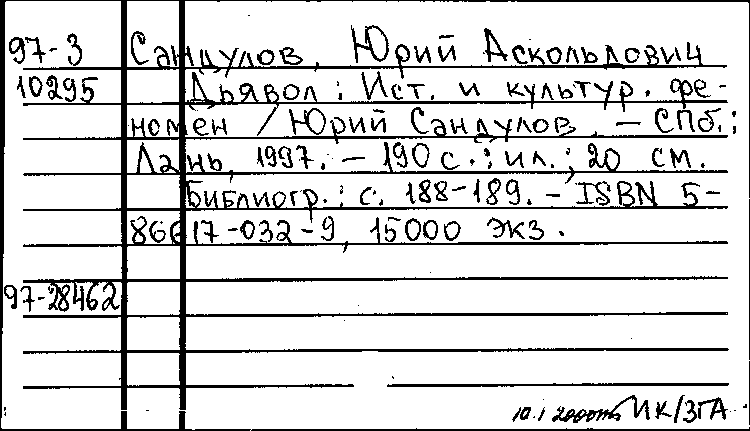 97-3 Сандулов, Юрий Аскольдович
10295 Дьявол: Ист. и культур. фе-
номен / Юрий Сандулов. — СПб.:
Лань, 1997. — 190 с.: ил.; 20 см.
Библиогр.: с. 188-189. — ISBN 5-
86617-032-9, 15000 экз.
97-28462
10.1 2000 ИК/ЗГА